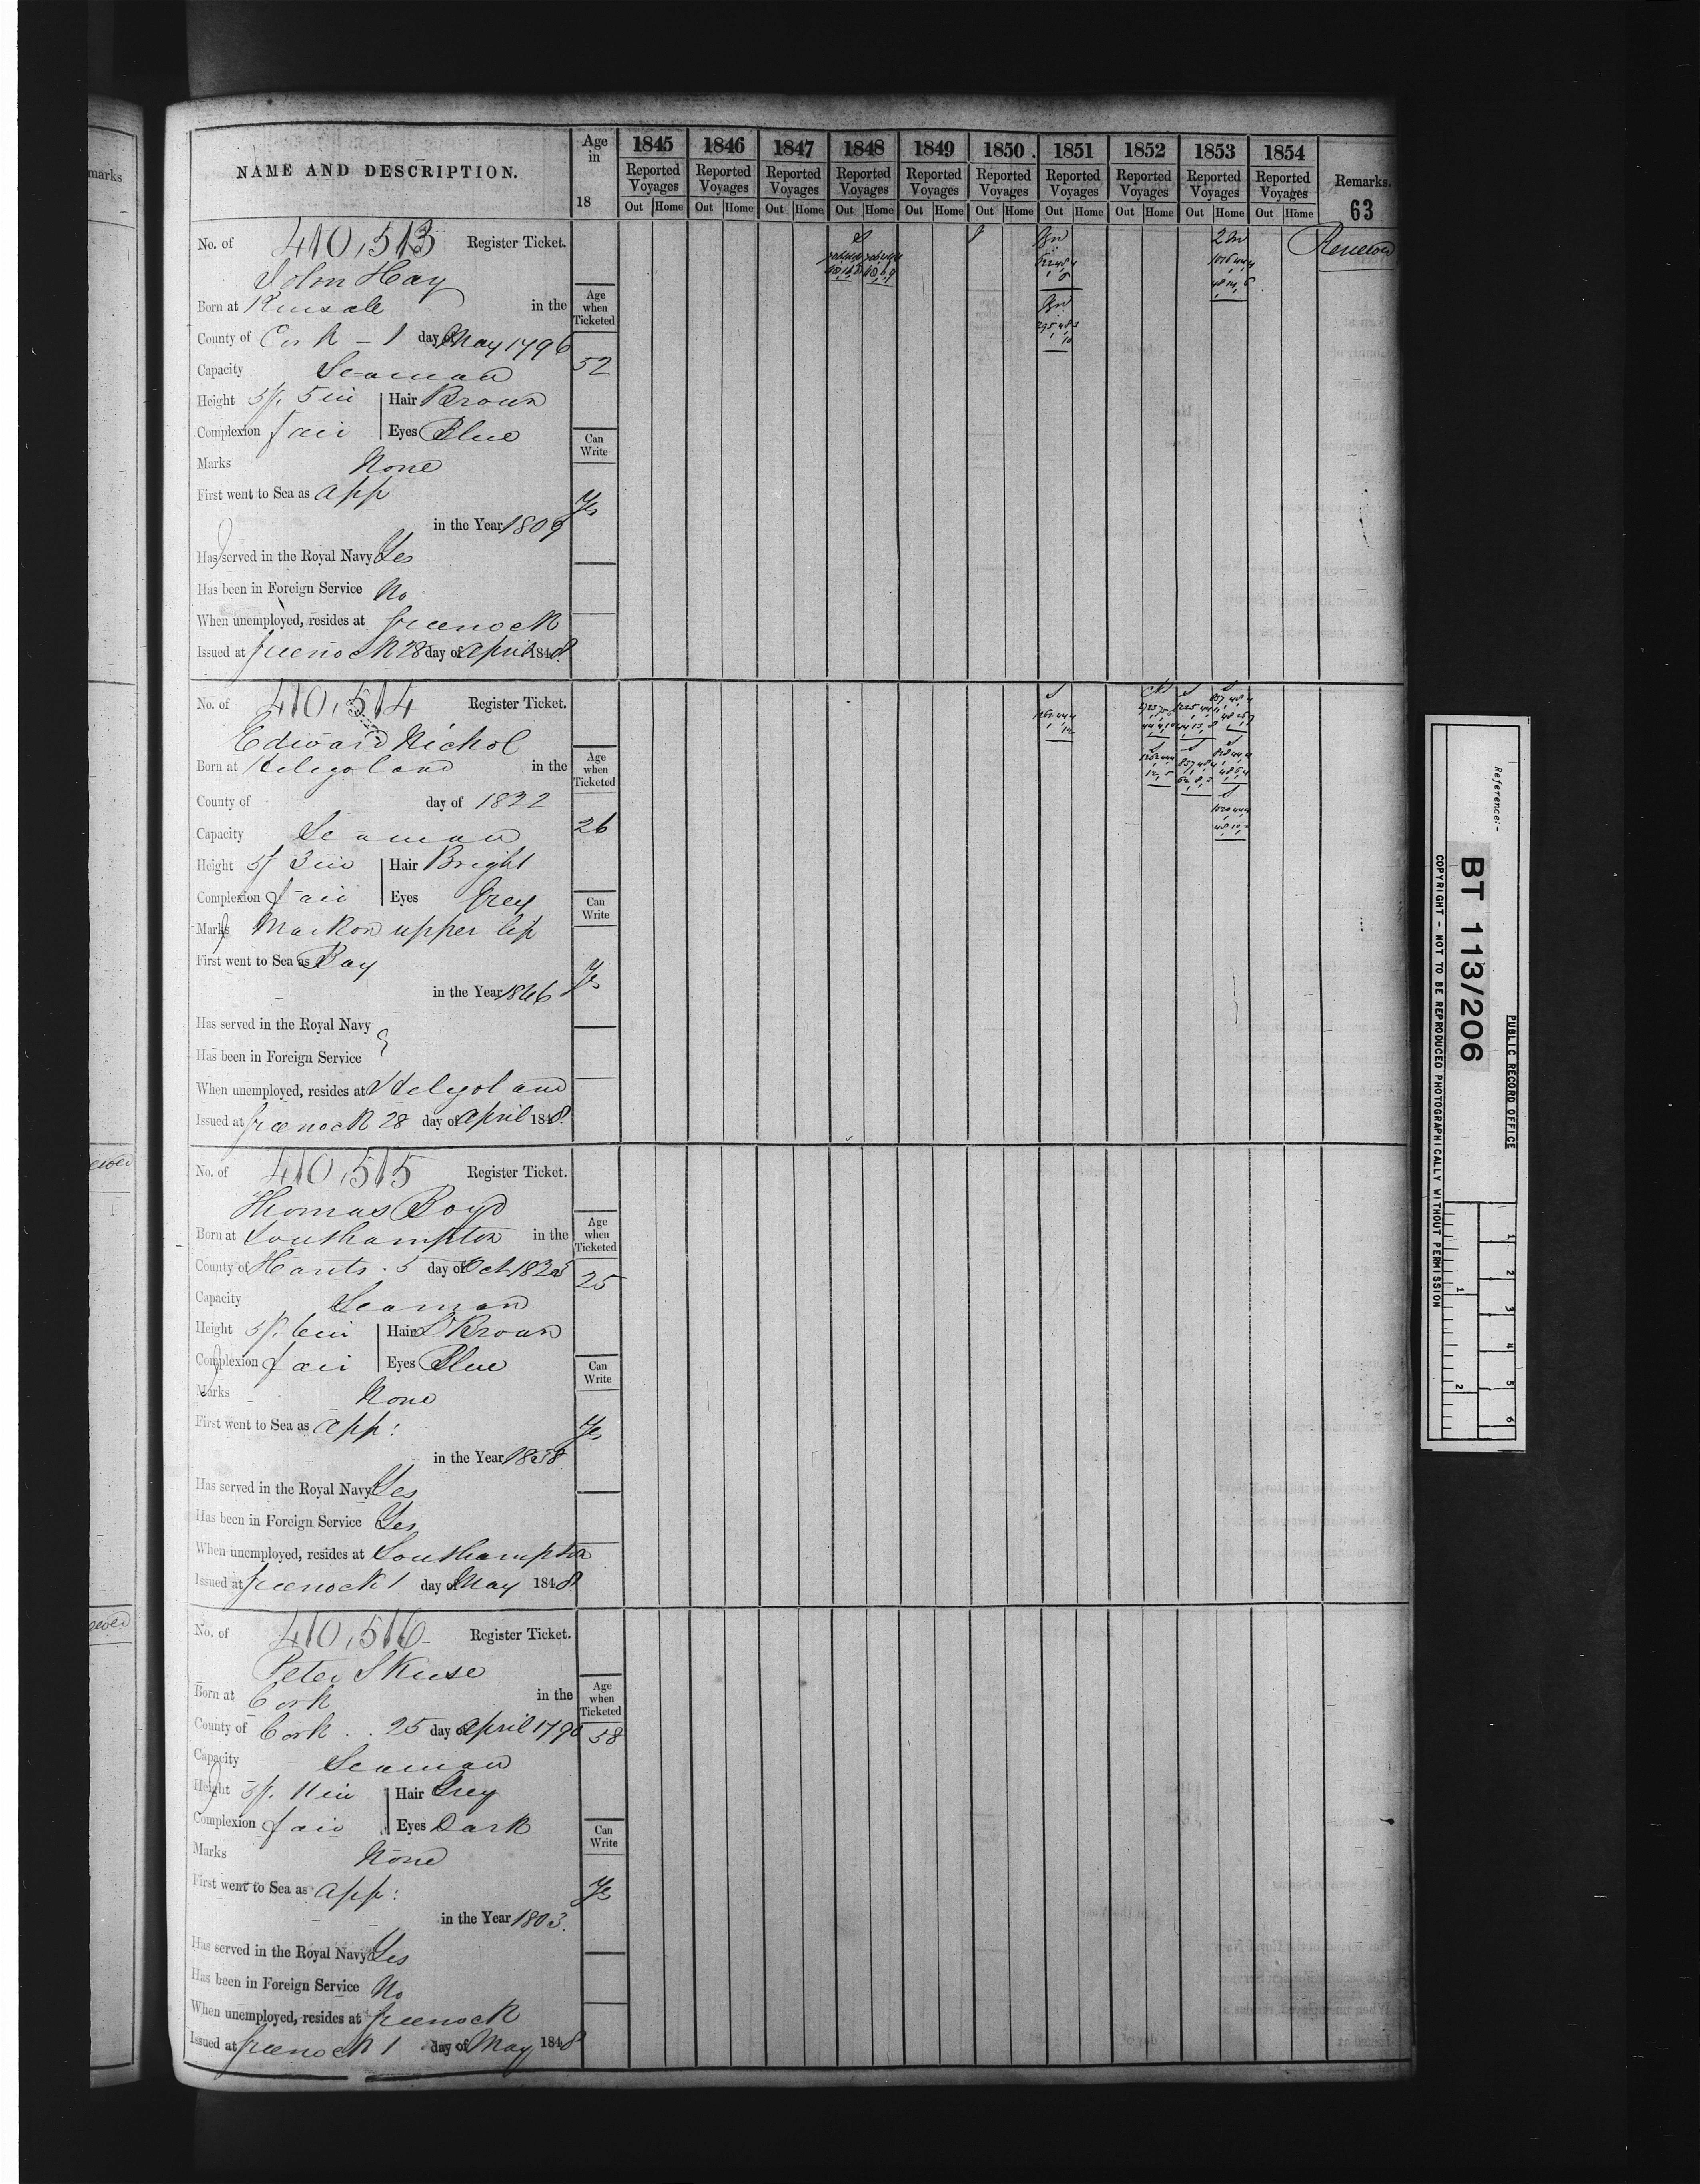 NAME AND DESCRIPTION.
Age in 18
1845 1846 1847 1848 1849 1850 1851 1852 1853 1854
Reported Voyages Reported Voyages Reported Voyages Reported Voyages Reported Voyages Reported Voyages Reported Voyages Reported Voyages Reported Voyages Reported Voyages
Out Home Out Home Out Home Out Home Out Home Out Home Out Home Out Home Out Home Out Home
Remarks.
63
marks
No. of 410,513 Register Ticket.
John Hay
Born at Kinsale in the
County of Cork - 1 day of May 1796
Capacity Seaman
Height 5f. 5in Hair Brown
Complexion fair Eyes Blue
Marks None
First went to Sea as app
in the Year 1809
Has served in the Royal Navy Yes
Has been in Foreign Service No
When unemployed, resides at Greenock
Issued at Greenock 28 day of April 1848
Age when Ticketed
52
Can Write
Yes
Renewed
No. of 410,514 Register Ticket.
Edward Nichol
Born at Heligoland in the
County of day of 1822
Capacity Seaman
Height 5f 3in Hair Bright
Complexion fair Eyes Grey
Marks Mark on upper lip
First went to Sea as Boy
in the Year 1846
Has served in the Royal Navy
Has been in Foreign Service
When unemployed, resides at Heligoland
Issued at Greenock 28 day of April 1848.
Age when Ticketed
26
Can Write
Yes
No. of 410,515 Register Ticket.
Thomas Boyd
Born at Southampton in the
County of Hants. 5 day of Oct
Capacity Seaman
Height 5f. 6in Hair D Brown
Complexion fair Eyes Blue
Marks None
First went to Sea as app:
in the Year 1838
Has served in the Royal Navy Yes
Has been in Foreign Service Yes
When unemployed, resides at Southampton
Issued at Greenock 1 day of May 1848
Age when Ticketed
25
Can Write
Yes
No. of 410,516 Register Ticket.
Peter Skuse
Born at Cork in the
County of Cork . . 25 day of April 1790
Capacity Seaman
Height 5f. 11in Hair Grey
Complexion fair Eyes Dark
Marks None
First went to Sea as app:
in the Year 1803.
Has served in the Royal Navy Yes
Has been in Foreign Service No
When unemployed, resides at Greenock
Issued at Greenock 1 day of May 1848
Age when Ticketed
58
Can Write
Yes
PUBLIC RECORD OFFICE
Reference:-
BT 113/206
COPYRIGHT - NOT TO BE REPRODUCED PHOTOGRAPHICALLY WITHOUT PERMISSION
1 2 3 4 5 6
1 2